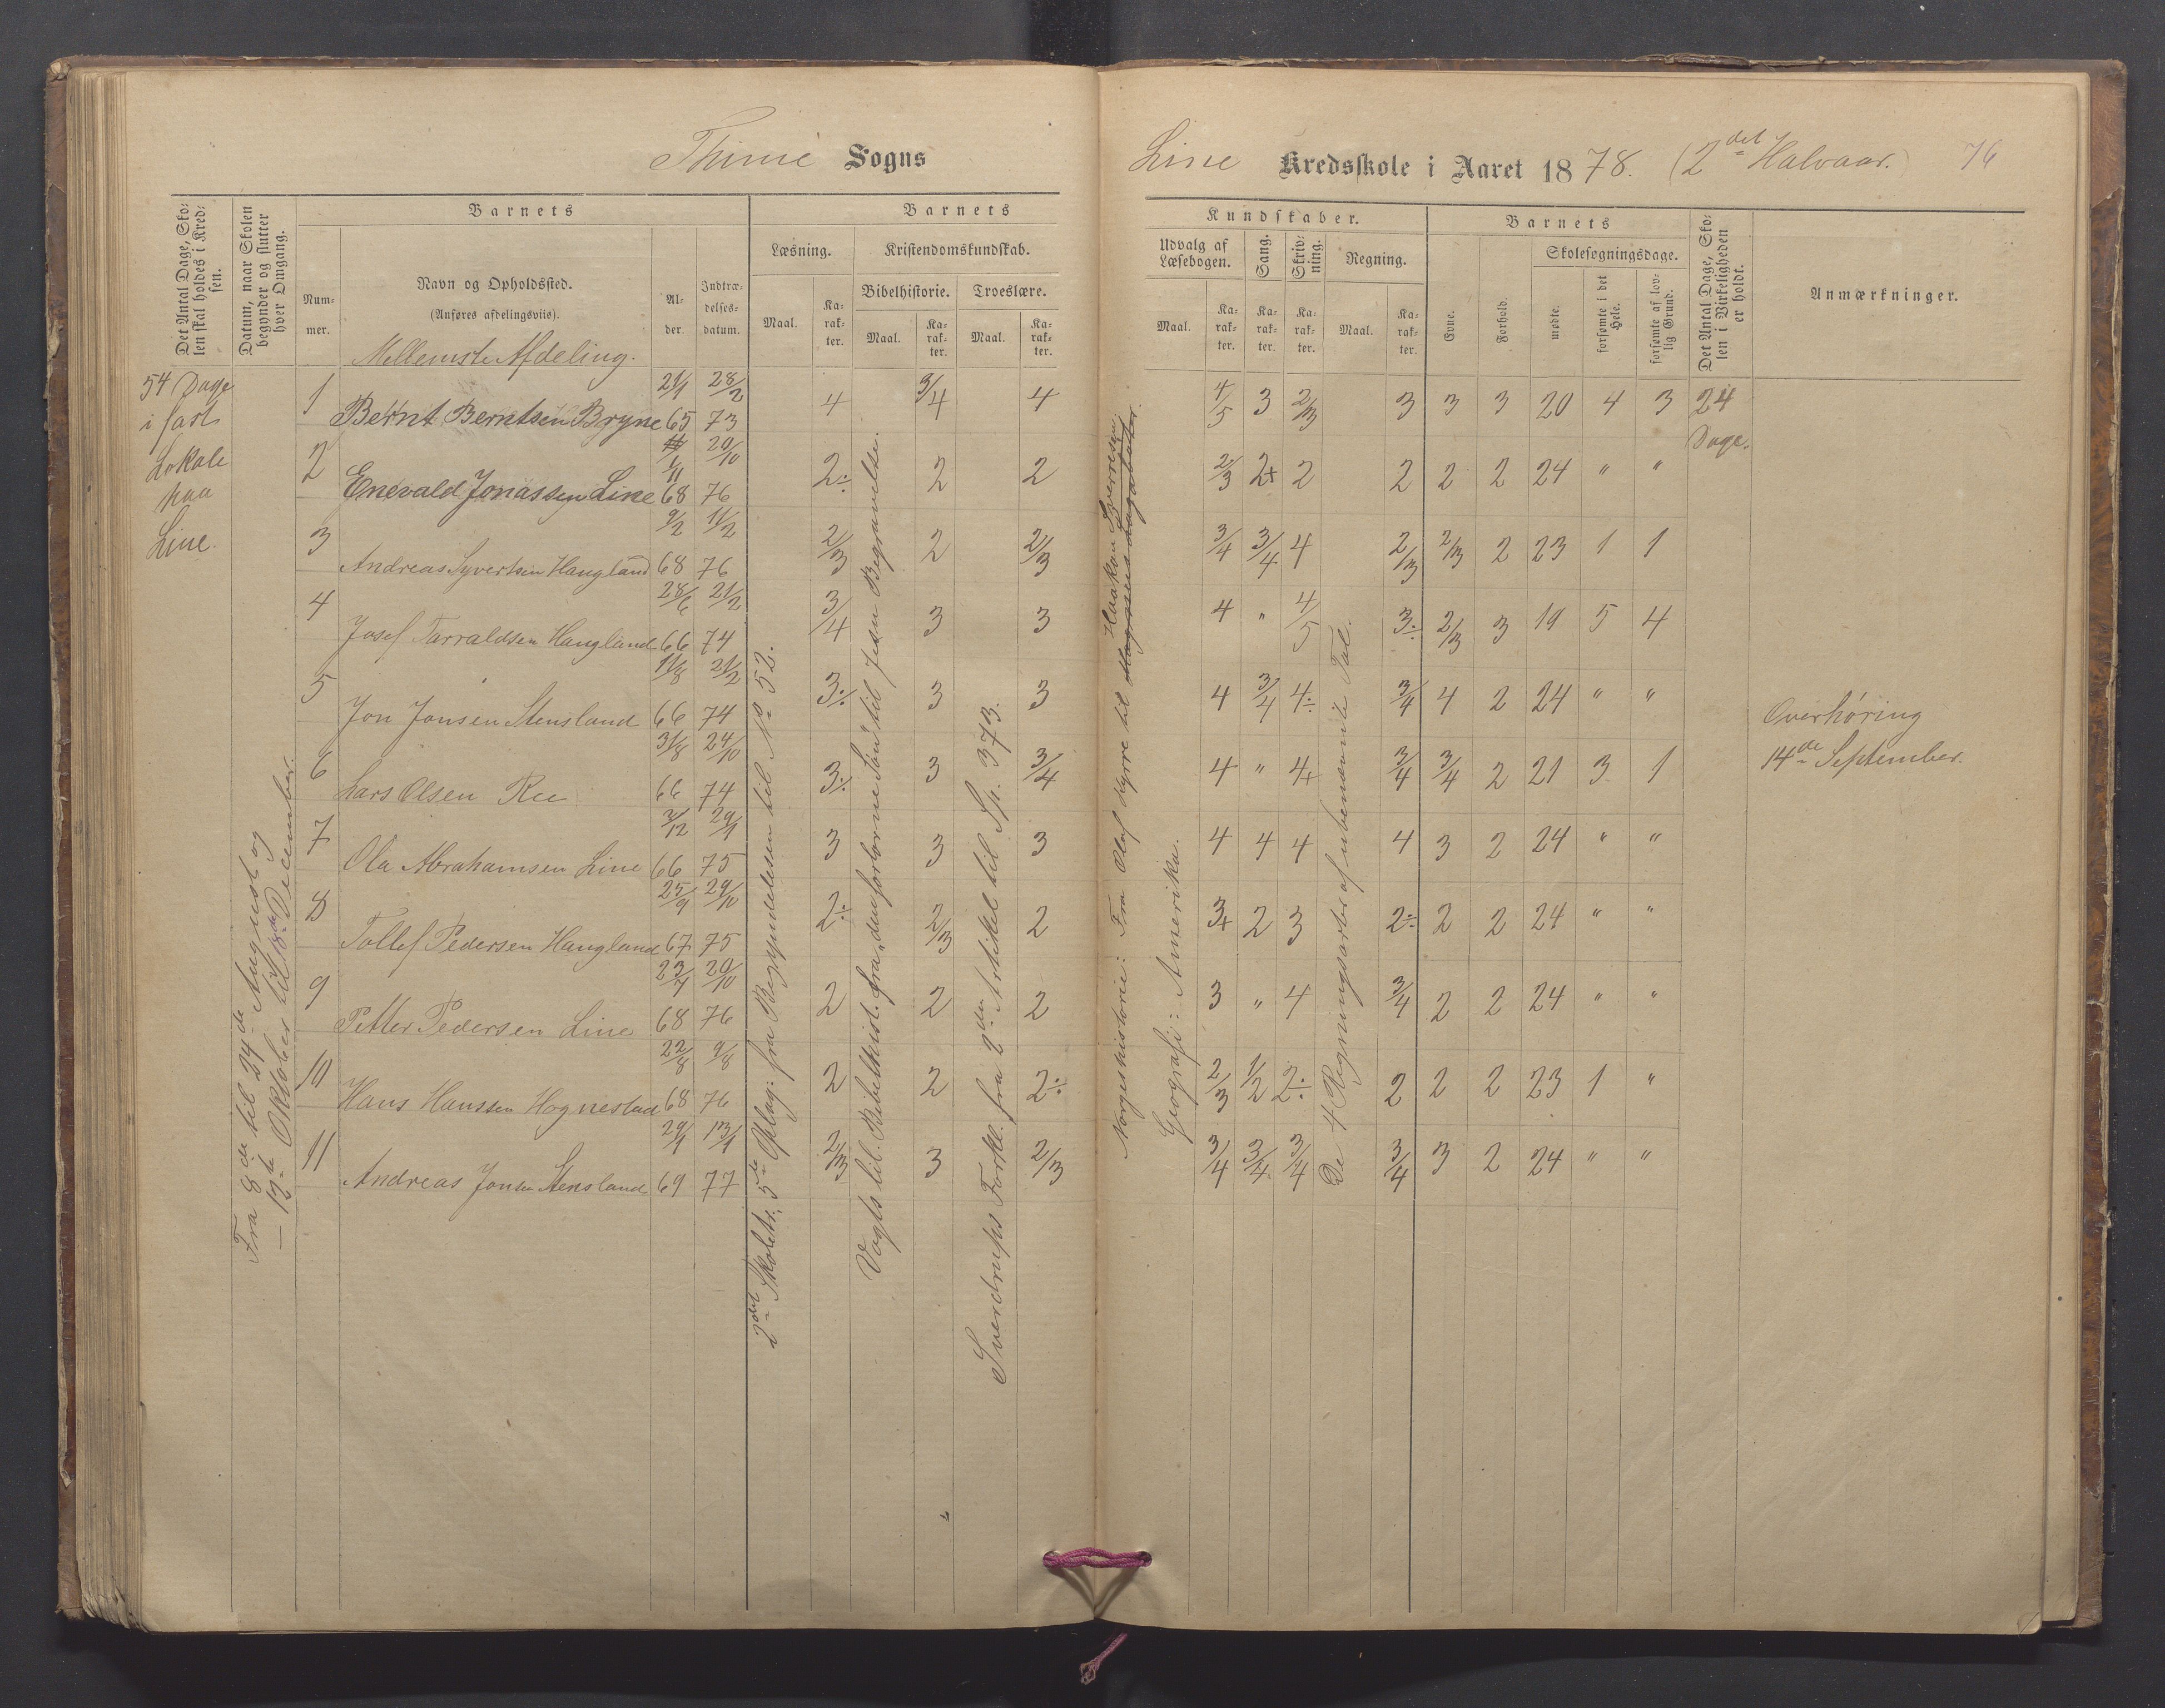 Thime Sogns
Line Kredsskole i Aaret 1878. (2det Halvaar.) 76
Det Antal Dage, Sko-
len skal holdes i Kred-
sen.
Datum, naar Skolen
begynder og slutter
hver Omgang.
Barnets
Num-
mer.
Navn og Opholdssted.
(Anføres afdelingsviis).
Mellemste Afdeling.
Al-
der.
Indtræ-
delses-
datum.
Barnets
Læsning.
Maal.
Ka-
rak-
ter.
Kristendomskundskab.
Bibelhistorie.
Maal.
Ka-
rak-
ter.
Troeslære.
Maal.
Ka-
rak-
ter.
Kundskaber.
Udvalg af
Læsebogen.
Maal.
Ka-
rak-
ter.
Sang.
Ka-
rak-
ter.
Skriv-
ning.
Ka-
rak-
ter.
Regning.
Maal.
Ka-
rak-
ter.
Barnets
Evne.
Forhold.
Skolesøgningsdage.
mødte.
forsømte i det
Hele.
forsømte af lov-
lig Grund.
Det Antal Dage, Sko-
len i Virkeligheden
er holdt.
Anmærkninger.
54 Dage
i fast
Lokale
paa
Line.
Fra 8de til 24de August og
— 12te Oktober til 8de December.
2det Skoletr. 5te Oplag: fra Begyndelsen til No 52.
Vogts lil. Bibelhist. fra "den forlorne Søn" til Jesu Begravelse.
Sverdrups Forkl. fra 2den Artikel til Sp. 373.
Norgeshistorie: Fra Olaf Kyrre til Magnus Lagabøter. Haakon Sverresøn
Geografi: Amerika.
De 4 Regningsarter af ubenævnte Tal.
1 Bernt Berntsen Bryne 21/1 65 28/2 73 4 3/4 4 4/5 3 2/3 3 3 3 20 4 3 24 Dage.
2 Enevald Jonassen Line 1/11 68 20/10 76 2÷ 2 2 2/3 2+ 2 2 2 2 24 " "
3 Andreas Syvertsen Haugland 9/2 68 11/2 76 2/3 2 2/3 3/4 3/4 4 2/3 2/3 2 23 1 1
4 Josef Tarraldsen Haugland 28/6 66 21/2 74 3/4 3 3 4 " 4/5 3÷ 2/3 3 19 5 4
5 Jon Jonsen Stensland 11/8 66 21/2 74 3÷ 3 3 4 3/4 4÷ 3/4 4 2 24 " "
6 Lars Olsen Ree 31/8 66 24/10 74 3÷ 3 3/4 4 " 4+ 3/4 3/4 2 21 3 1
7 Ola Abrahamsen Line 3/12 66 29/1 75 3 3 3 4 4 4 4 3 2 24 " "
8 Tollef Pedersen Haugland 25/9 67 29/10 75 2÷ 2/3 2 3+ 2 3 2÷ 2 2 24 " "
9 Petter Pedersen Line 23/7 68 20/10 76 2 2 2 3 " 4 3/4 2 2 24 " "
10 Hans Hanssen Hognestad 22/8 68 9/8 76 2 2 2÷ 2/3 1/2 2÷ 2 2 2 23 1 "
11 Andreas Jonsen Stensland 29/1 69 13/1 77 2/3 3 2/3 3/4 3/4 3/4 3/4 3 2 24 " "
Overhøring
14de September.